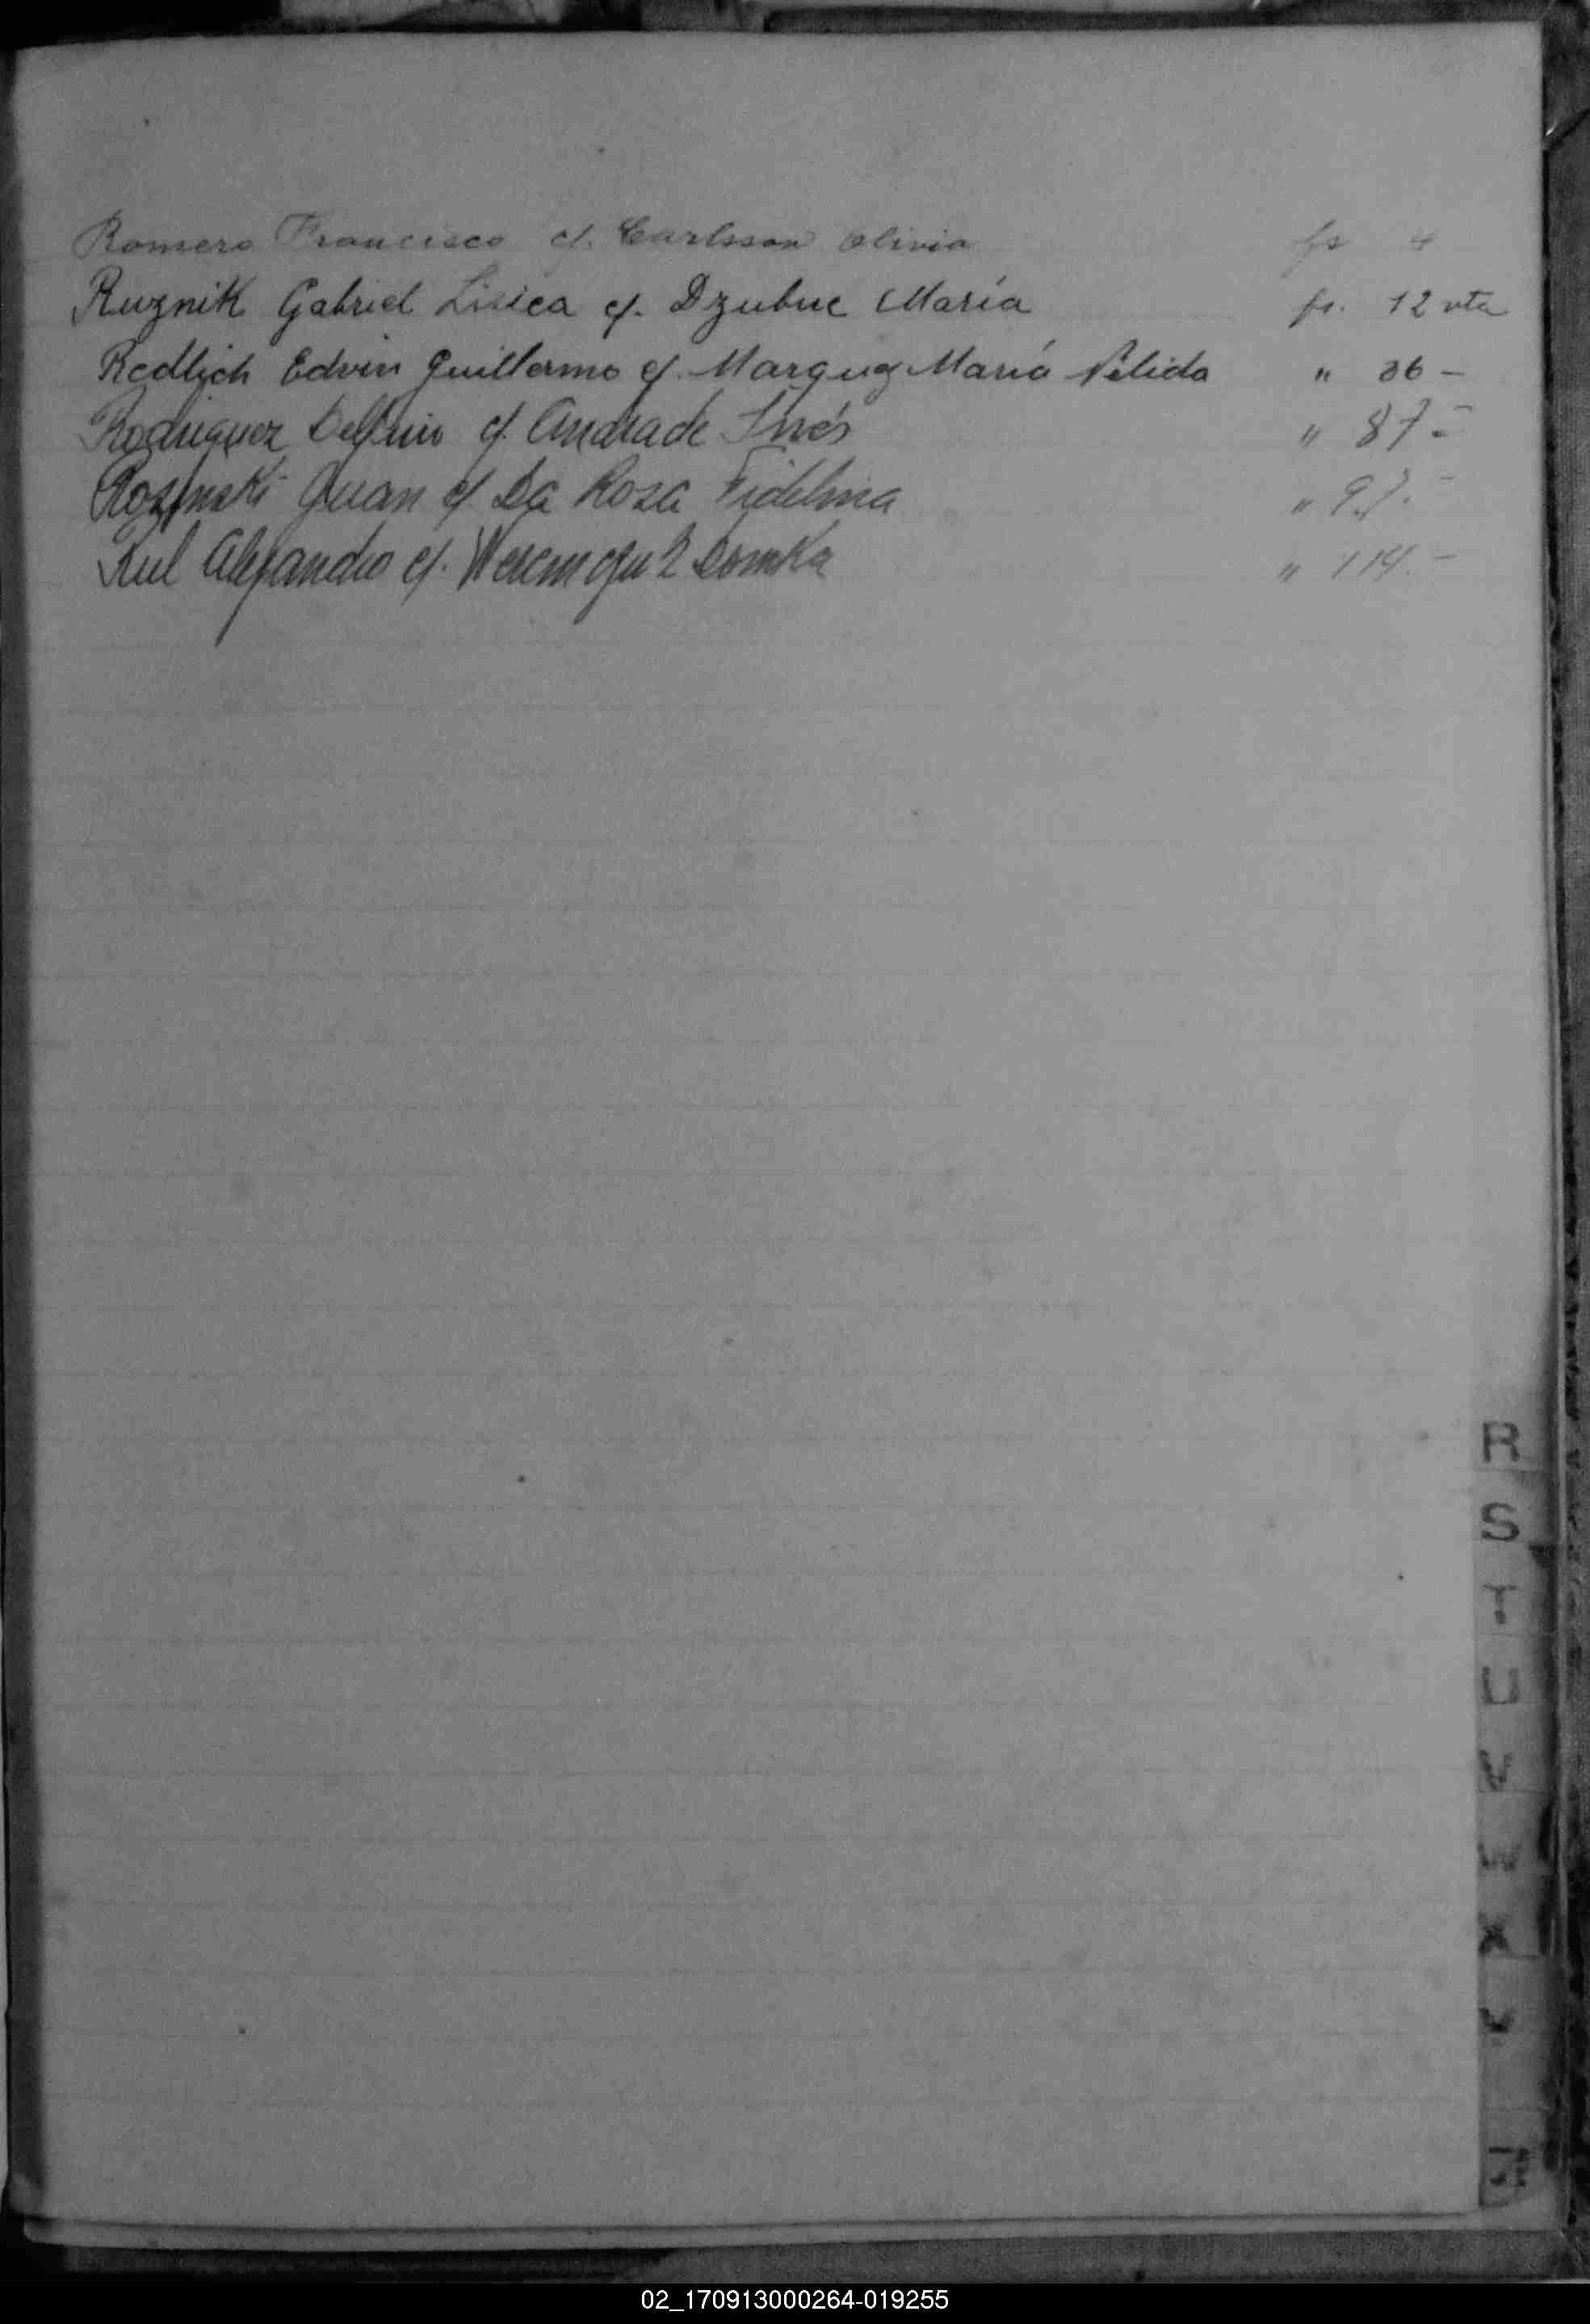 Romero Francisco c/. Carlsson Olivia fs 4
Ruznik Gabriel Lisica c/. Dzubuc María fs. 12 vta
Redlich Edvin Guillermo c/. Marquez María Nélida " 36 -
Rodriguez Delfin c/. Andrade Inés " 87 -
Rozinski Juan c/ Da Rosa Fidelina " 97. -
Rul Alejandro c/. Domka " 114. -
R
S
T
U
V
W
X
Y
Z
02_170913000264-019255